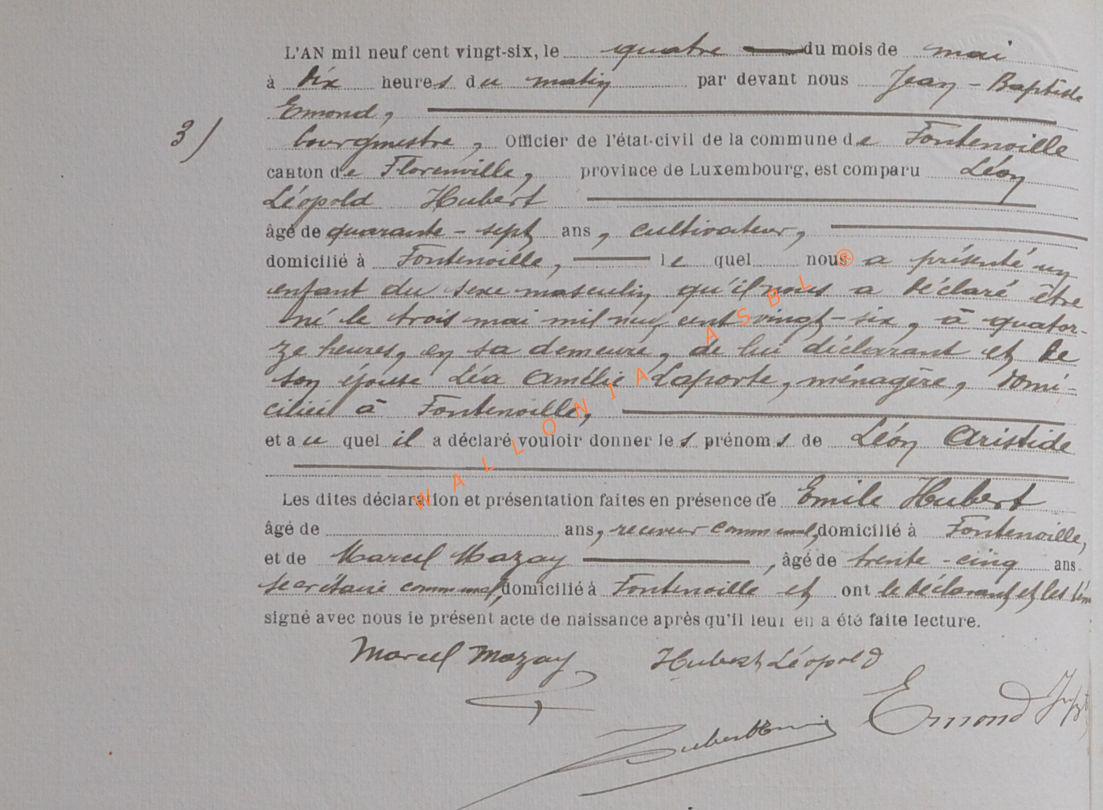 L'AN mil neuf cent vingt-six, le quatre du mois de mai
à dix heures du matin par devant nous Jean-Baptiste
Emond,
3) bourgmestre, Officier de l'état-civil de la commune de Fontenoille
canton de Florenville, province de Luxembourg, est comparu Léon
Léopold Hubert
âgé de quarante-sept ans, cultivateur,
domicilié à Fontenoille, le quel nous a présenté un
enfant du sexe masculin qu'il nous a déclaré être
né le trois mai mil neuf cent vingt-six, à quator-
ze heures, en sa demeure, de lui déclarant et de
son épouse Léa Amélie Laporte, ménagère, domi-
ciliée à Fontenoille,
et au quel il a déclaré vouloir donner les prénoms de Léon Aristide
Les dites déclaration et présentation faites en présence de Emile Hubert
âgé de ans, receveur communal, domicilié à Fontenoille,
et de Marcel Mazay, âgé de trente-cinq ans
secrétaire communal, domicilié à Fontenoille et ont le déclarant et les tém
signé avec nous le présent acte de naissance après qu'il leur en a été faite lecture.
Marcel Mazay Hubert Léopold
Emond
WALLONIA ASBL ®